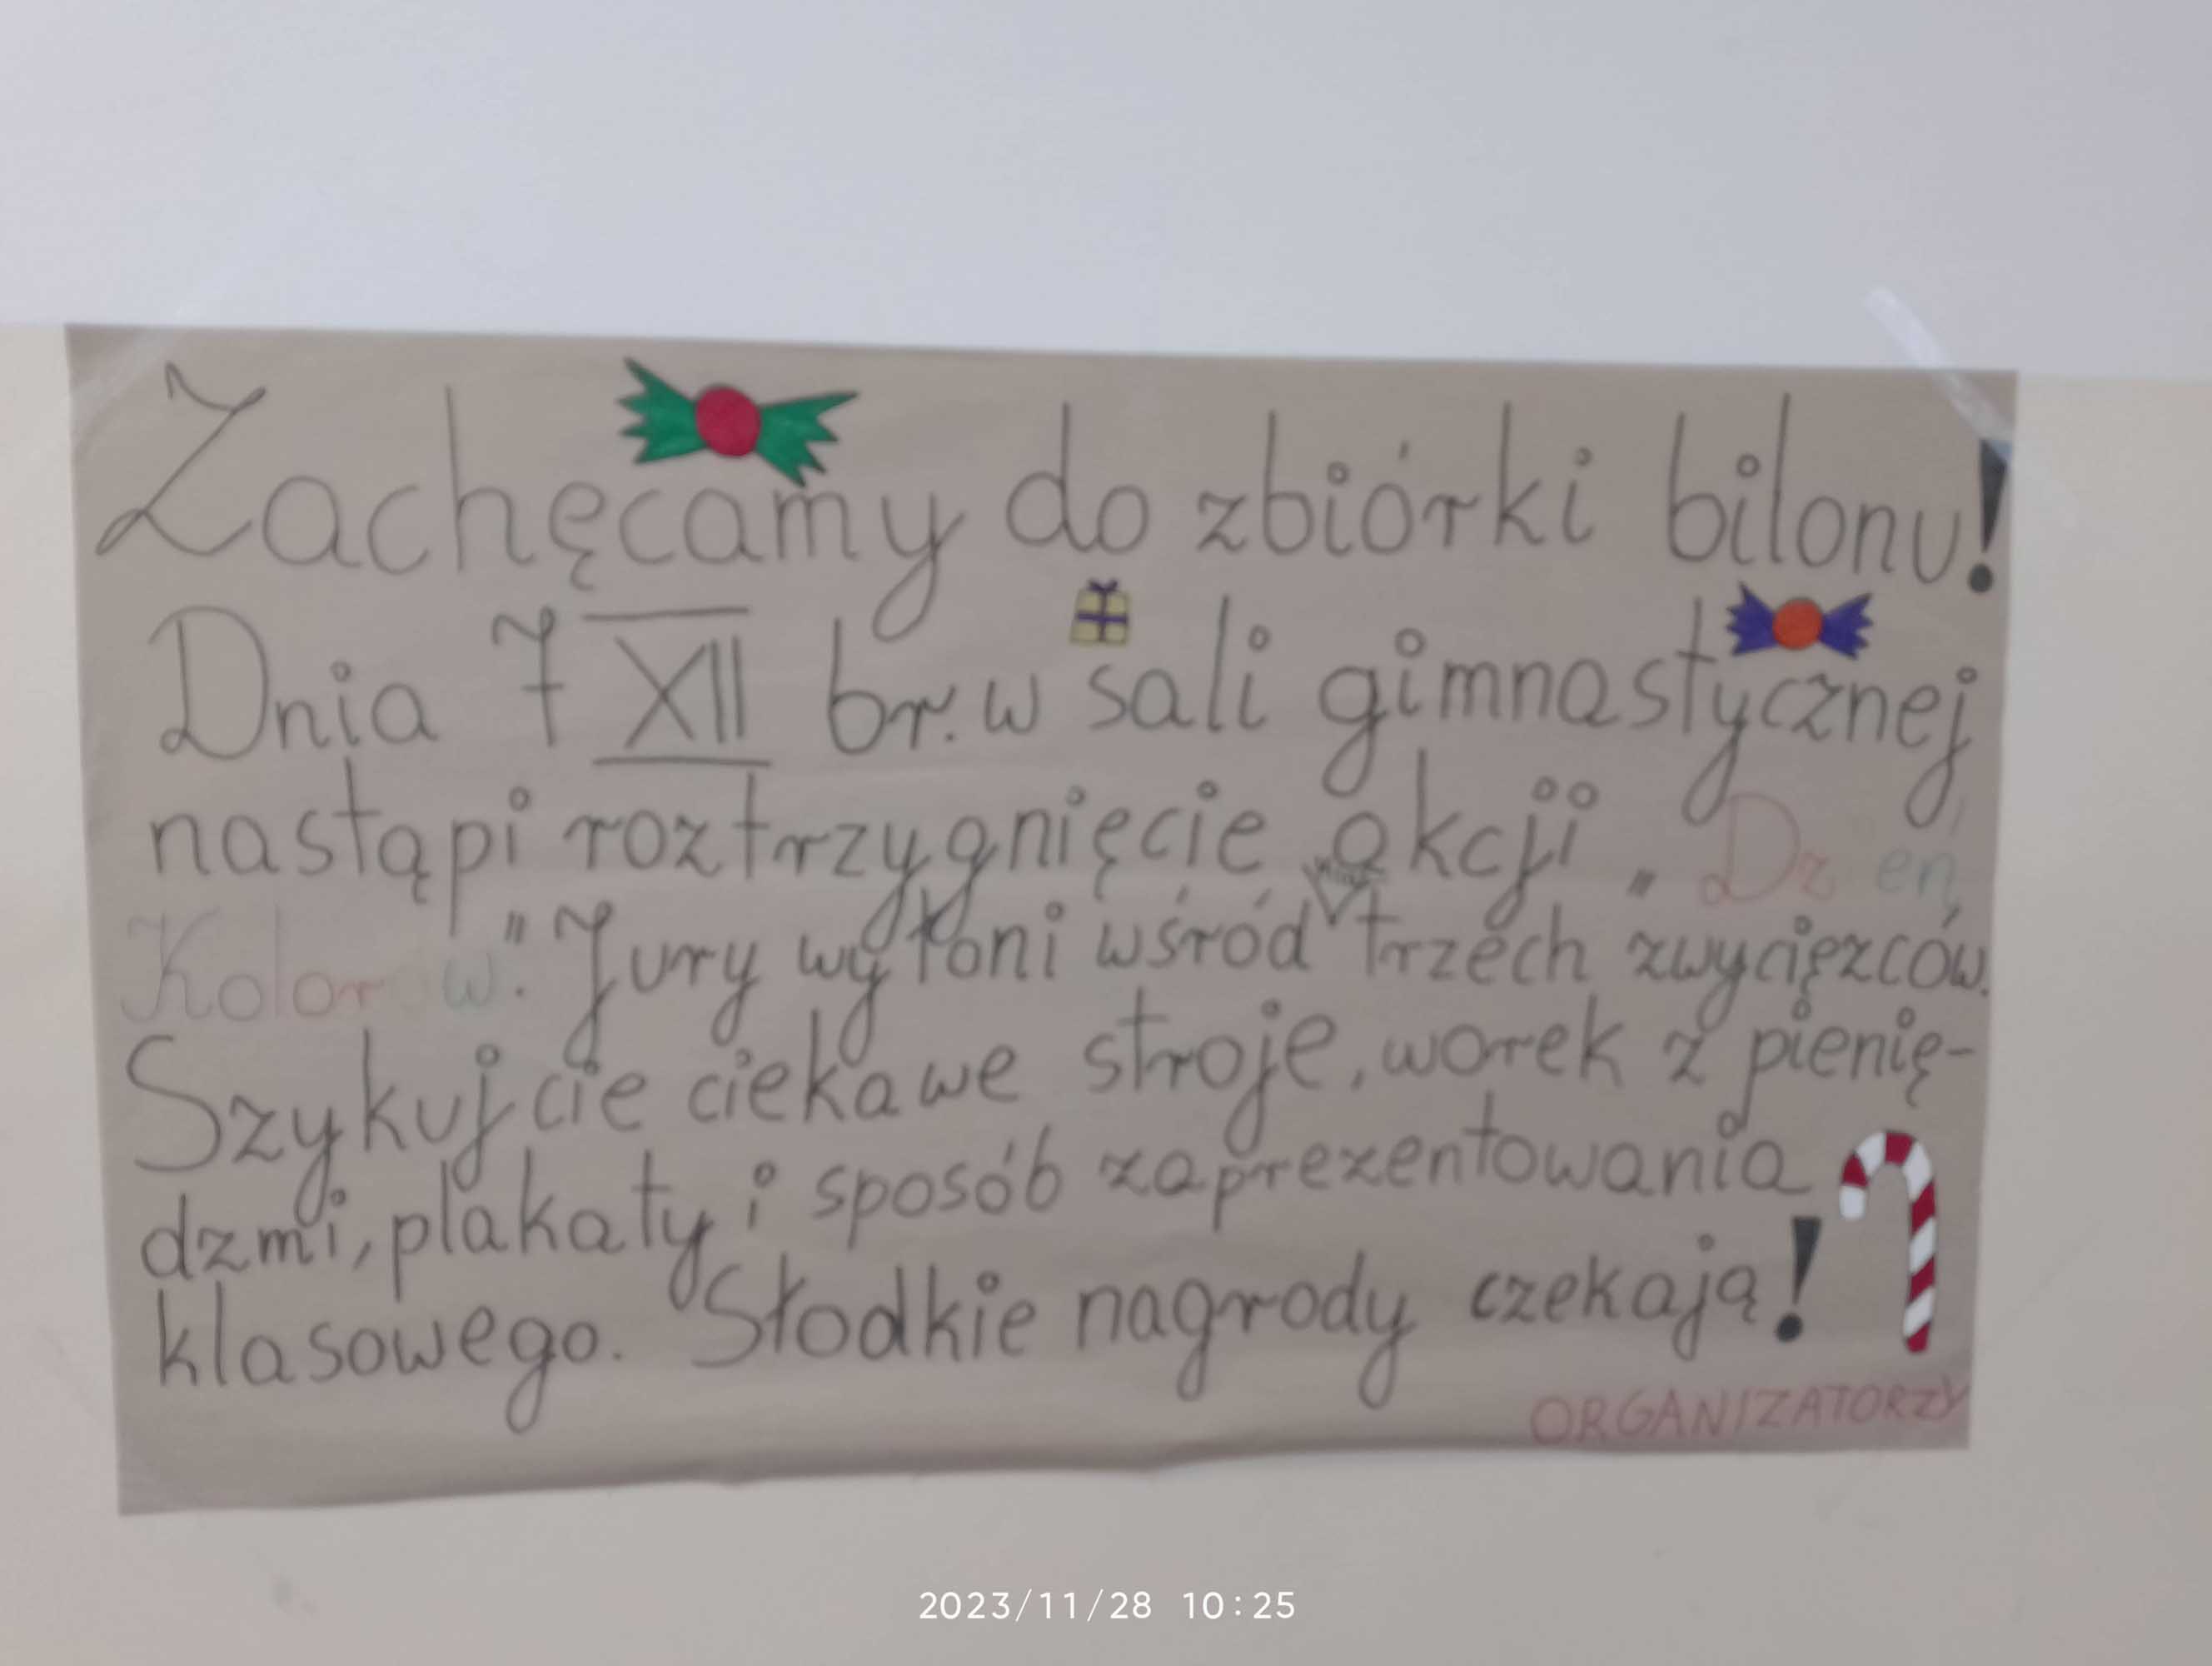 Zachęcamy do zbiórki bilonu!
Dnia 7 XII br. w sali gimnastycznej
nastąpi roztrzygnięcie akcji „Dzień
Kolorów". Jury wyłoni wśród trzech zwycięzców.
Szykujcie ciekawe stroje, worek z pienię-
dzmi, plakaty i sposób zaprezentowania
klasowego. Słodkie nagrody czekają!
ORGANIZATORZY
2023/11/28 10:25